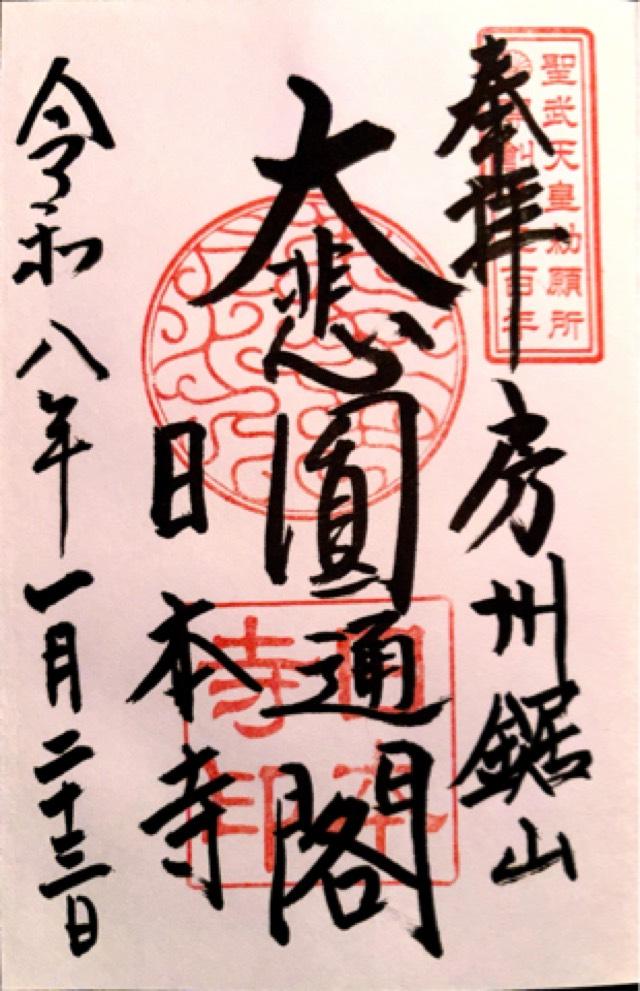 聖武天皇勅願所
開創千三百年
奉拝
房州鋸山
大悲圓通閣
日本寺
日本寺印
令和八年一月二十三日